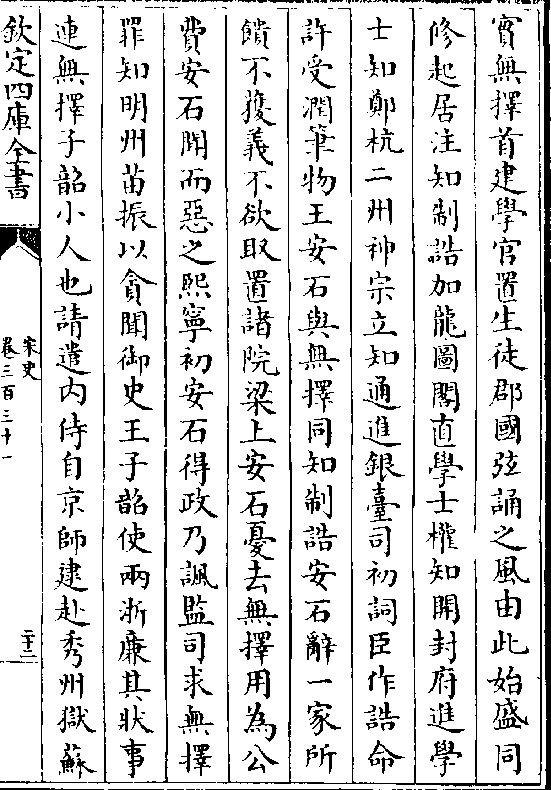 實無擇首建學官置生徒郡國弦誦之風由此始盛同
修起居注知制誥加龍圖閣直學士權知開封府進學
士知鄭杭二州神宗立知通進銀臺司初詞臣作誥命
許受潤筆物王安石與無擇同知制誥安石辭一家所
饋不獲義不欲取置諸院梁上安石憂去無擇用為公
費安石聞而惡之熙寧初安石得政乃諷監司求無擇
罪知明州苗振以貪聞御史王子韶使兩浙廉其狀事
連無擇子韶小人也請遣内侍自京師逮赴秀州獄蘇
欽定四庫全書
宋史
卷三百三十一
二十二